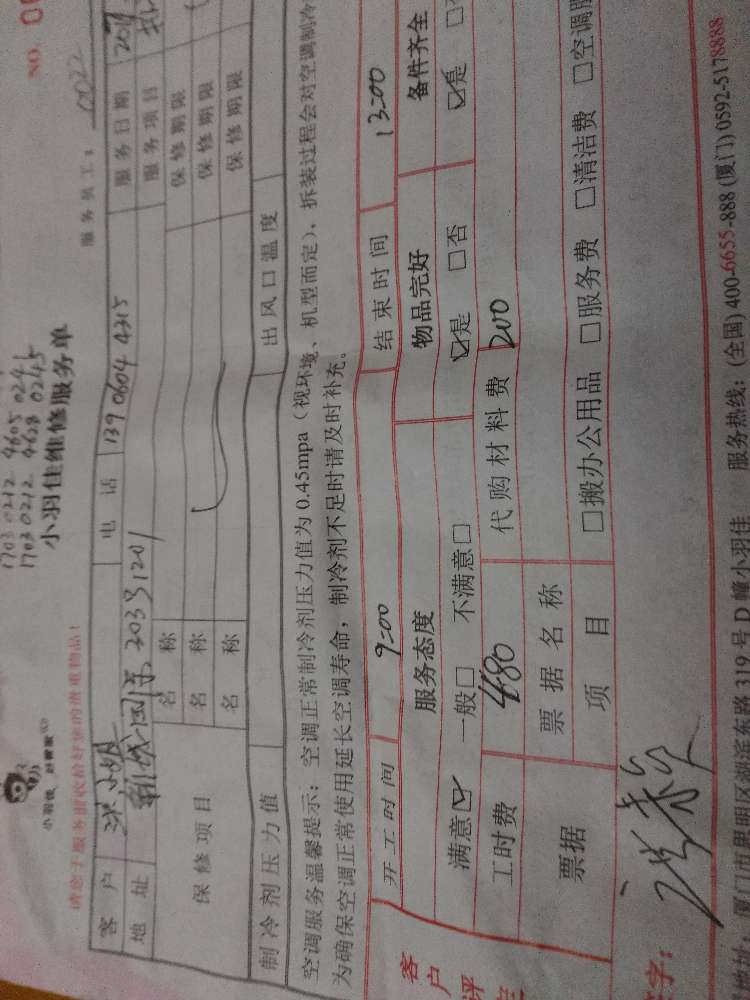 NO. 0
1703 0212 4605 0241
1703 0212 4628 0245
小羽佳
小羽佳维修服务单
服务员工: 0022
请您于服务前收拾好您的贵重物品!
客户 洪小姐 电话 139 0604 4315 服务日期
地址 203号1201 服务项目
保修项目 名称 保修期限
名称 保修期限
名称 保修期限
制冷剂压力值 出风口温度
空调服务温馨提示: 空调正常制冷剂压力值为 0.45mpa (视环境、机型而定), 拆装过程会对空调制冷
为确保空调正常使用延长空调寿命, 制冷剂不足时请及时补充。
开工时间 9:00 结束时间 13:00
客户评
服务态度 物品完好 备件齐全
满意☑ 一般□ 不满意□ ☑是 □否 ☑是 □否
工时费 480 代购材料费 200
票据 票据名称
项目 □搬办公用品 □服务费 □清洁费 □空调服
字:
地址: 厦门市思明区湖滨东路 319 号 D 幢小羽佳 服务热线: (全国) 400-6655-888 (厦门) 0592-5178888